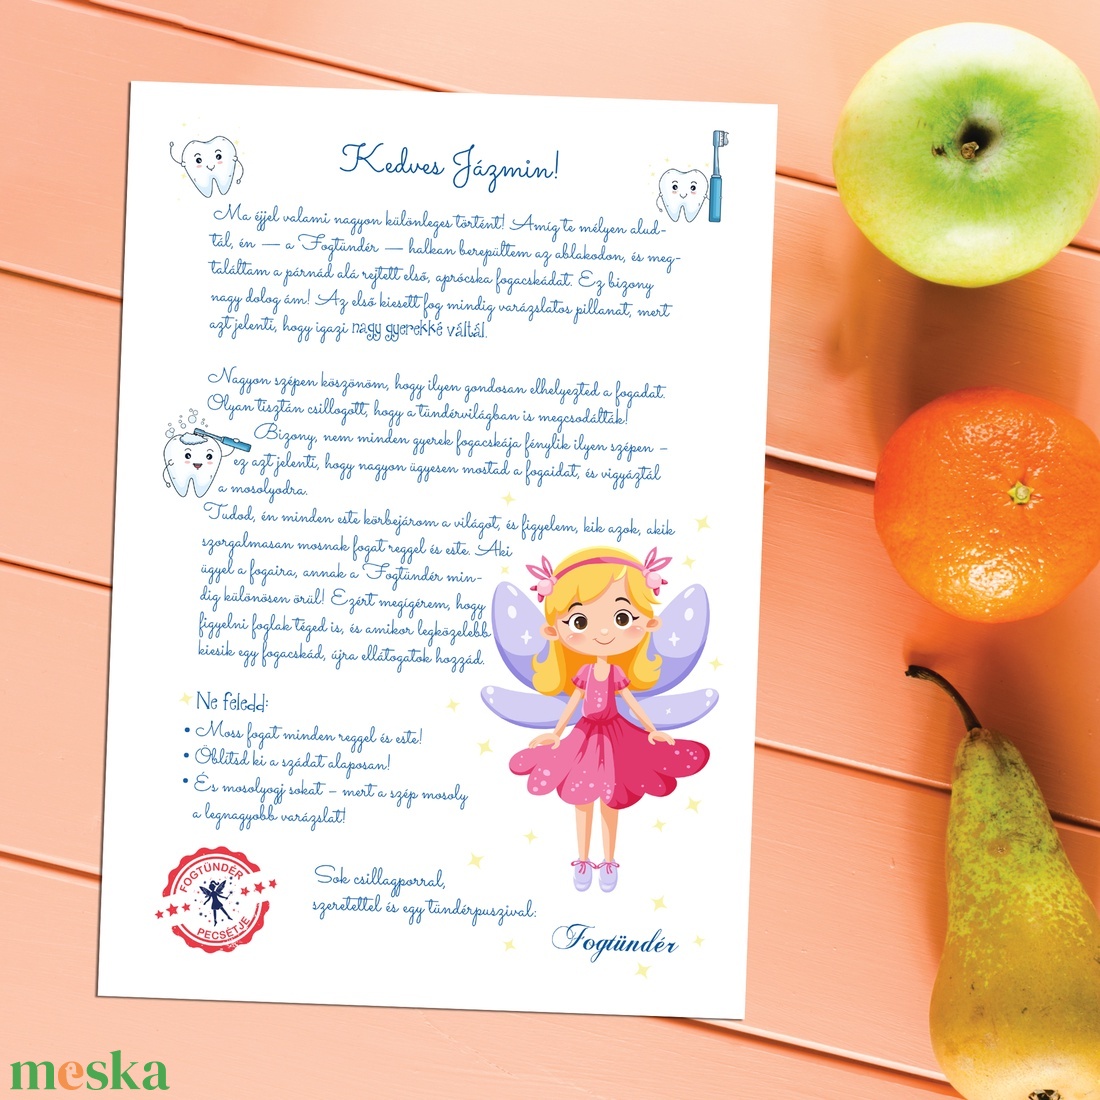 Kedves Jázmin!
Ma éjjel valami nagyon különleges történt! Amíg te mélyen alud-
tál, én — a Fogtündér — halkan berepültem az ablakodon, és meg-
találtam a párnád alá rejtett első, aprócska fogacskádat. Ez bizony
nagy dolog ám! Az első kiesett fog mindig varázslatos pillanat, mert
azt jelenti, hogy igazi nagy gyerekké váltál.
Nagyon szépen köszönöm, hogy ilyen gondosan elhelyezted a fogadat.
Olyan tisztán csillogott, hogy a tündérvilágban is megcsodálták!
Bizony, nem minden gyerek fogacskája fénylik ilyen szépen –
ez azt jelenti, hogy nagyon ügyesen mostad a fogaidat, és vigyáztál
a mosolyodra.
Tudod, én minden este körbejárom a világot, és figyelem, kik azok, akik
szorgalmasan mosnak fogat reggel és este. Aki
ügyel a fogaira, annak a Fogtündér min-
dig különösen örül! Ezért megígérem, hogy
figyelni foglak téged is, és amikor legközelebb
kiesik egy fogacskád, újra ellátogatok hozzád.
Ne feledd:
• Moss fogat minden reggel és este!
• Öblítsd ki a szádat alaposan!
• És mosolyogj sokat – mert a szép mosoly
a legnagyobb varázslat!
FOGTÜNDÉR
PECSÉTJE
Sok csillagporral,
szeretettel és egy tündérpuszival:
Fogtündér
meska